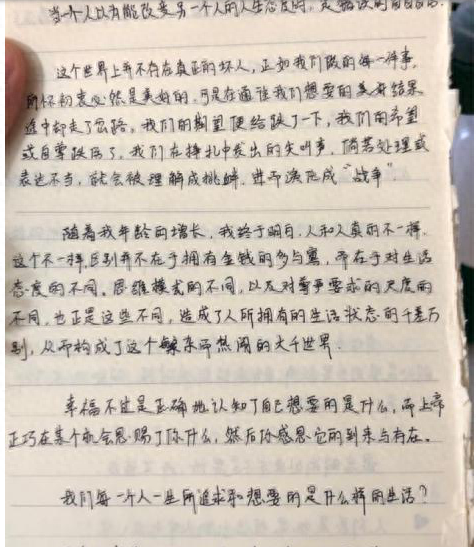 当一个人以有能改变另一个人的人生态度时,是错误的自以为
这个世界上并不存在真正的坏人,正如我们做的每一件事,
所怀初衷必然是美好的,可是在通往我们想要的美好结果
途中却走了岔路。我们的期望便给跌了一下,我们的希望
或自尊跌伤了,我们在挣扎中发出的尖叫声,倘若处理或
表达不当,就会被理解成挑衅,进而演化成“战争”
随着我年龄的增长,我终于明白,人和人真的不一样,
这个不一样,区别并不在于拥有金钱的多与寡,而在于对生活
态度的不同,思维模式的不同,以及对尊严要求的尺度的
不同,也正是这些不同,造成了人所拥有的生活状态的千差万
别,从而构成了这个繁杂而热闹的大千世界.
幸福不过是正确地认知了自己想要的是什么,而上帝
正巧在某个机会恩赐了你什么,然后你感恩它的到来与存在。
我们每一个人一生所追求和想要的是什么样的生活?